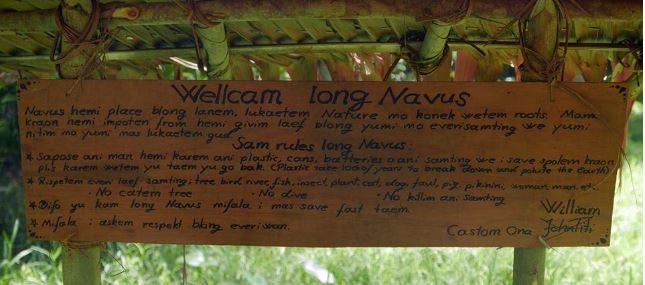 Wellcam long Navus
Navus hemi place blong lanem, lukaetem Nature mo konek wetem roots. Mama
kraon hemi impoten from hemi givim laef blong yumi mo everisamting we yumi
nitim mo yumi mas lukaetem gud.
Sam rules long Navus:
* Sapose ani man hemi karem ani plastic, cans, batteries o ani samting we i save spolem kraon
pls karem wetem yu taem yu go bak. (Plastic take 100s of years to break down and polute the Earth)
* Rispetem everi laef samting; tree, bird, river, fish, insect, plant, cat, dog, faul, pig, pikinini, woman, man etc.
• No catem tree • No dive • No killim ani samting
* Bifo yu kam long Navus mifala i mas save fast taem.
* Mifala i askem respekt blong everiwan.
Castom Ona William
JohnTiti